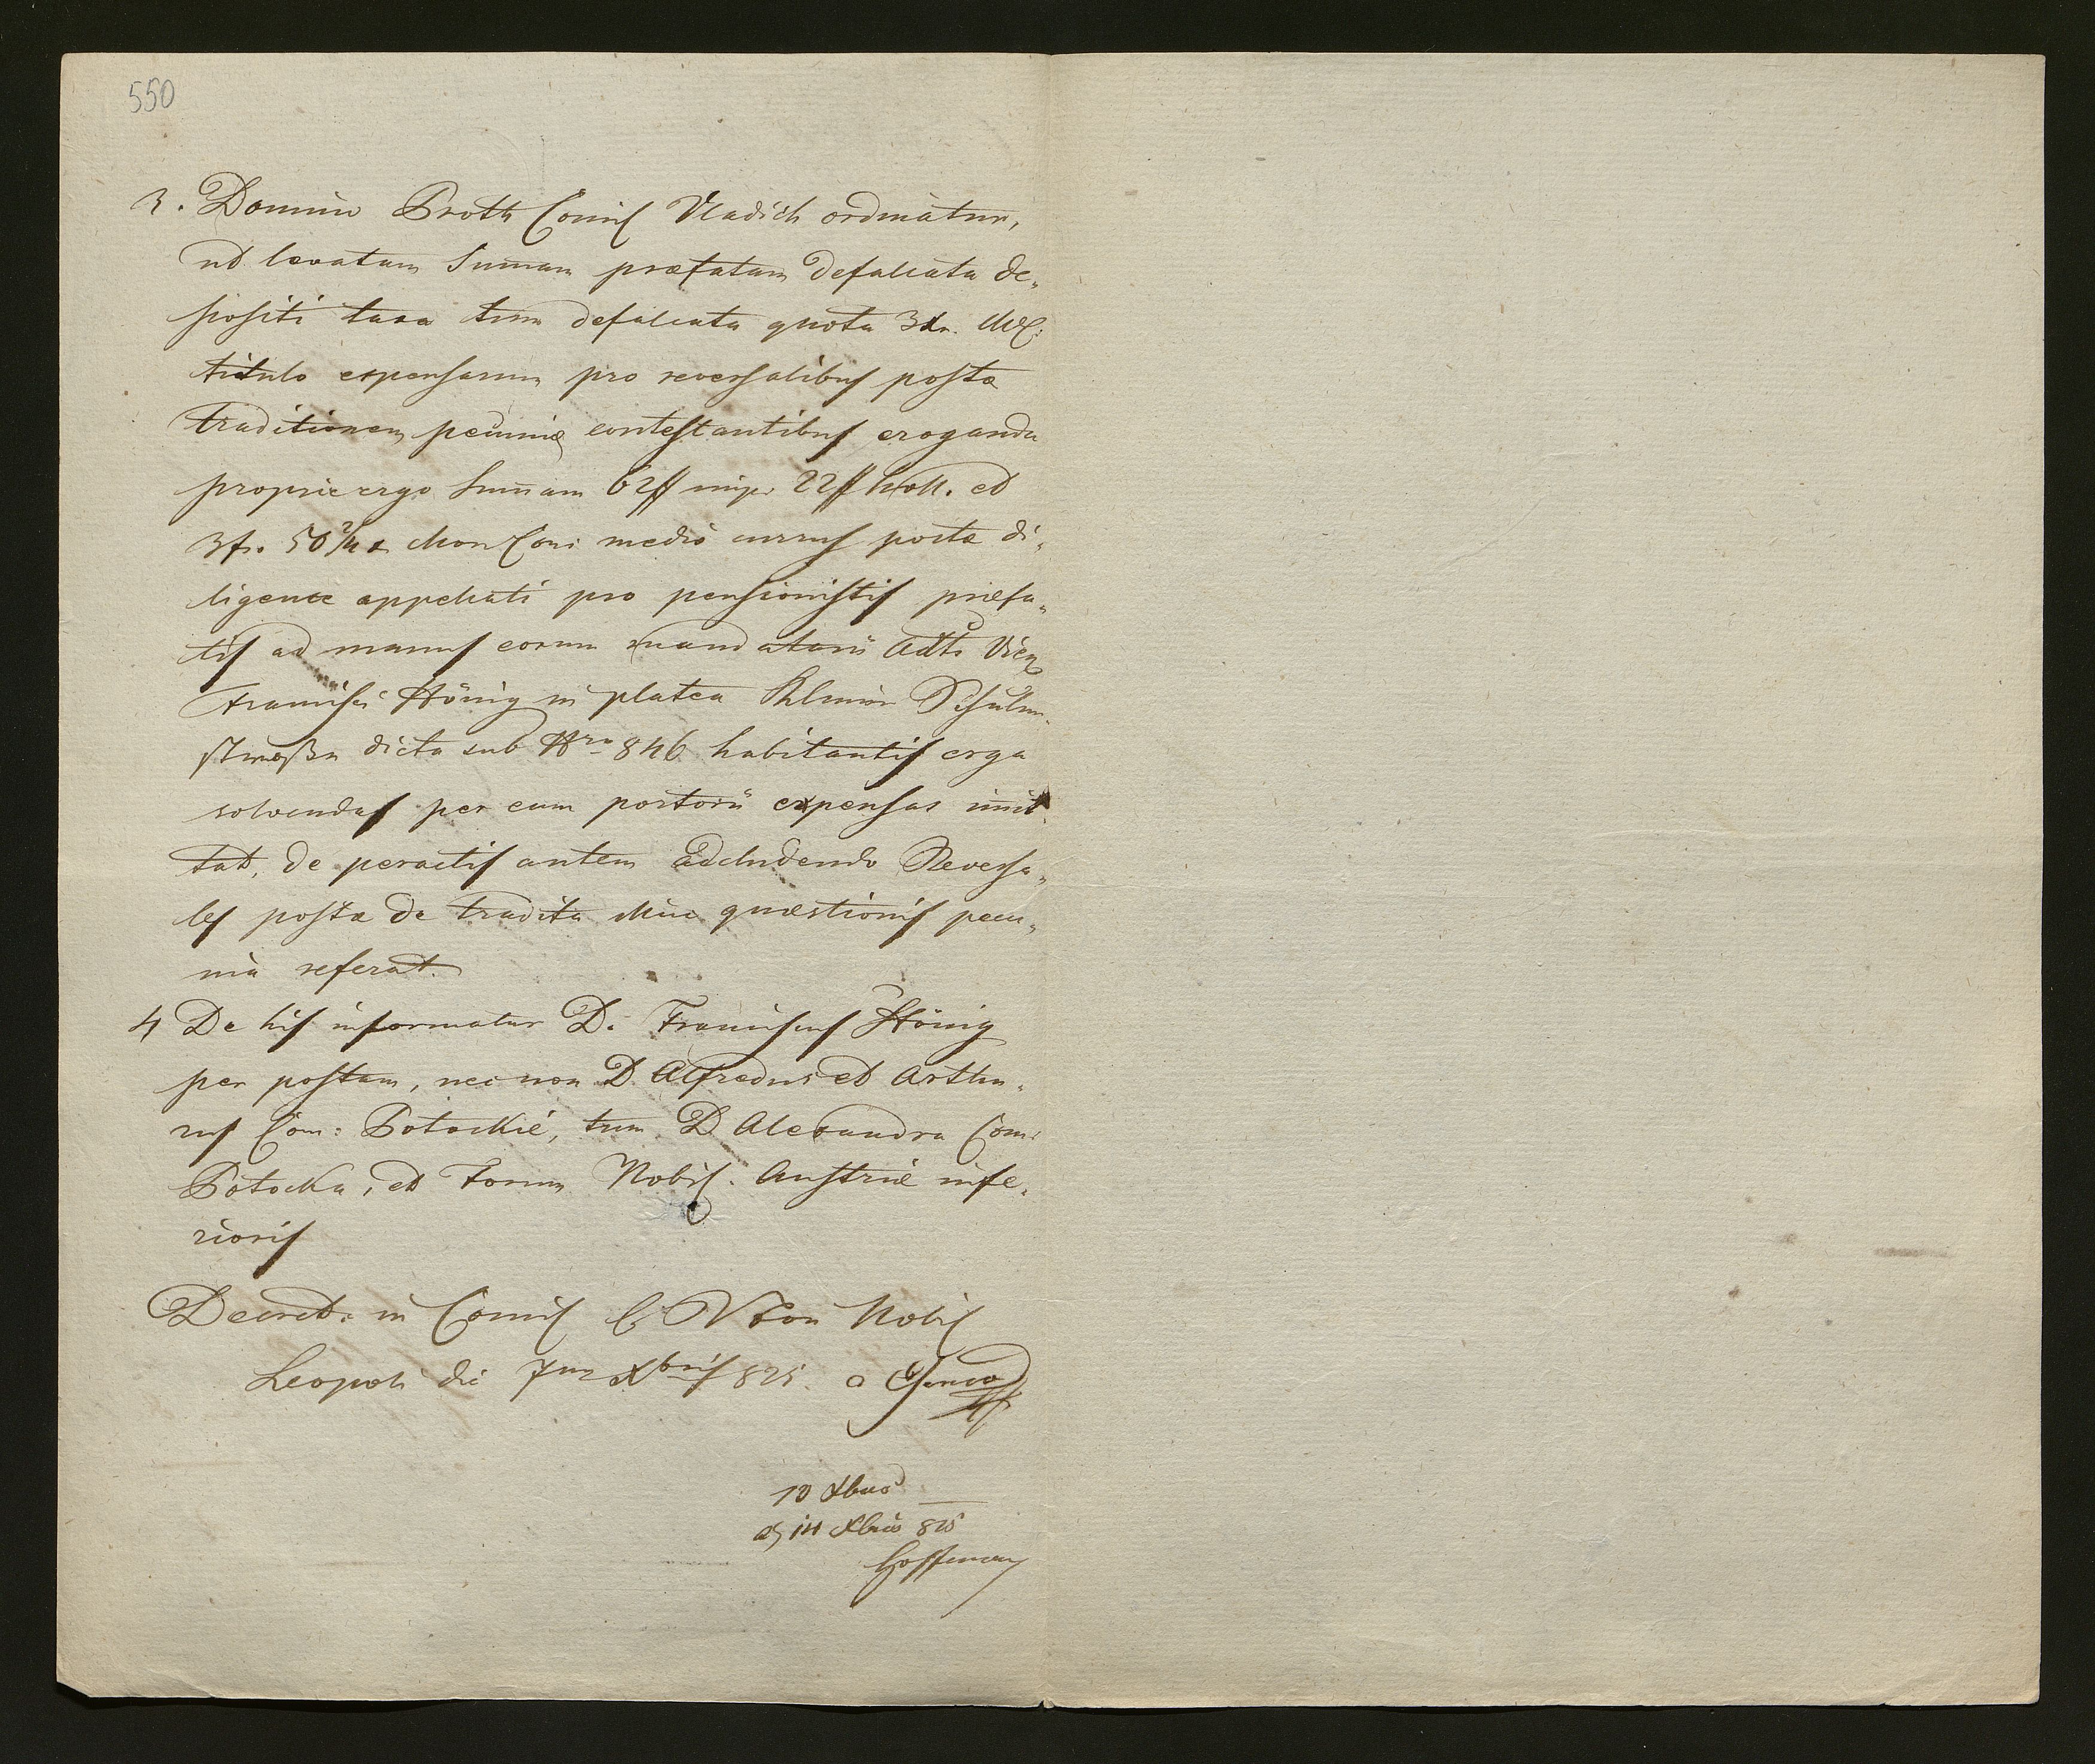 550
3. Domino Proth Comis Vladich ordinatur,
ut levatam Sum̄am præfatam defalcata de„
positi taxa tum defalcata quota 3 xr. MC:
titulo expensarum pro reversalibus postæ
traditionem pecuniæ contestantibus eroganda
proprie ergo Sum̄am 62 ff imp. 22 ff holl. et
3 fr. 50 2/4 x Mon Con: medio currus postæ di„
ligence appellati pro pensionistis præfa„
tis ad manus eorum mandatarii Adti Vien
Francisci Hönig in platea Schuler
straßen dicta sub Nro 846 habitantis erga
solvendas per eum portorii expensas im̄it„
tat, de peractis autem adcludendo Reversa„
les postæ de tradita quæstionis pecu„
nia referat.
4 De his informatur D. Franciscus Hönig
per postam, nec non D. Alfredus et Arthu„
rus Com: Potockie, tum D Alexandra Com:
Potocka, et Forum Nobil. Austriæ infe„
rioris
Decret. in Comis C R For Nobil
Leopoli die 7ma Xbris 825.
10 Xbris
14 Xbris 825
Hoffman